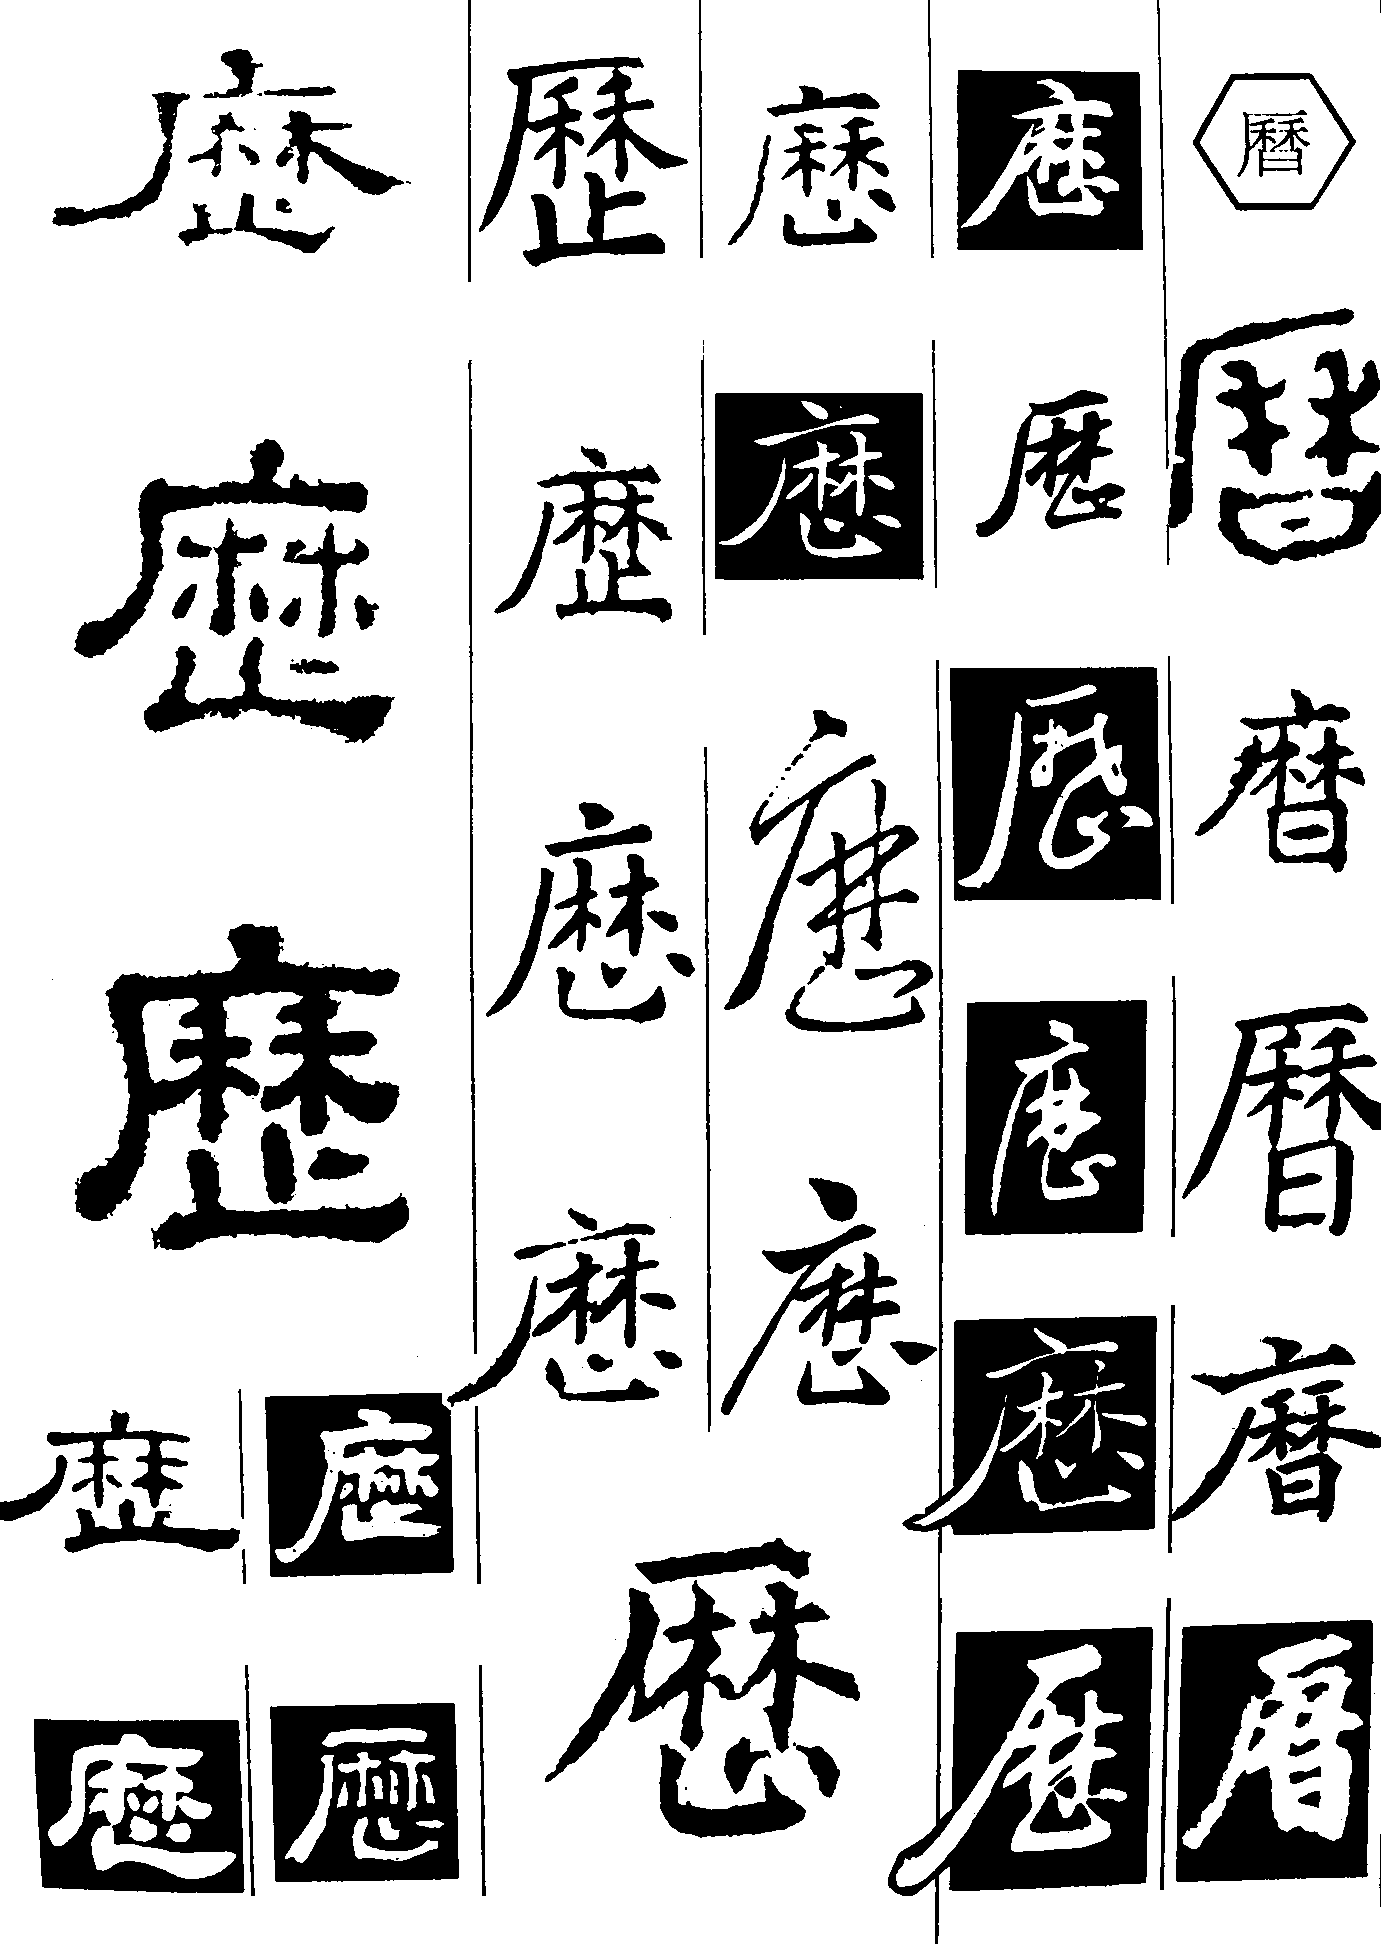 曆
曆曆曆曆曆
歷歷歷歷歷歷
歷歷歷歷
歷歷歷歷
歷
歷歷歷
歷歷
歷歷